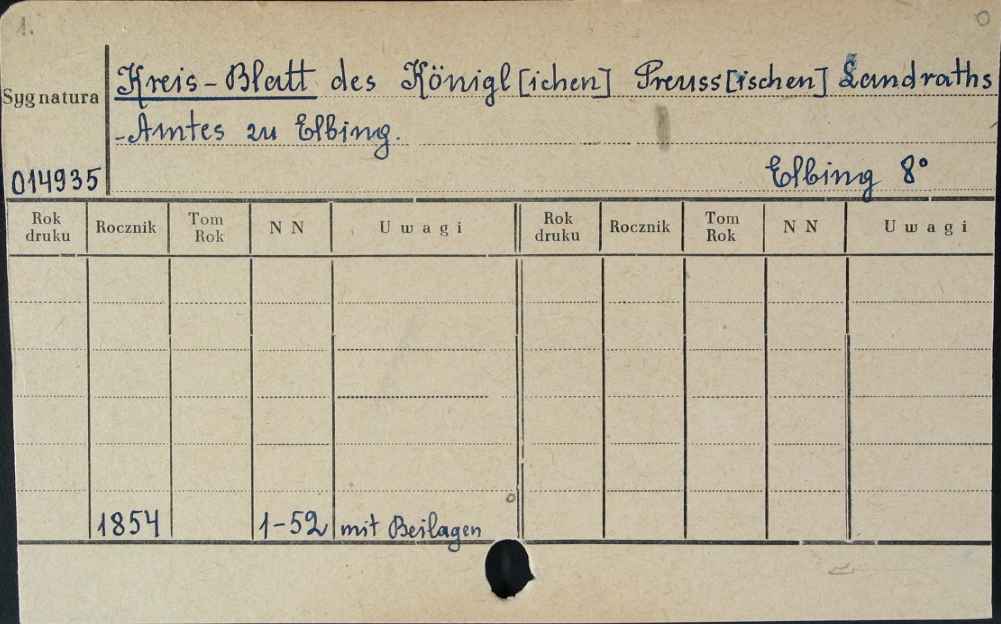 1.
Sygnatura
Kreis-Blatt des Königl[ichen] Preuss[ischen] Landraths
-Amtes zu Elbing.
014935
Elbing 8°
Rok druku Rocznik Tom Rok N N Uwagi Rok druku Rocznik Tom Rok N N Uwagi
1854 1-52 mit Beilagen